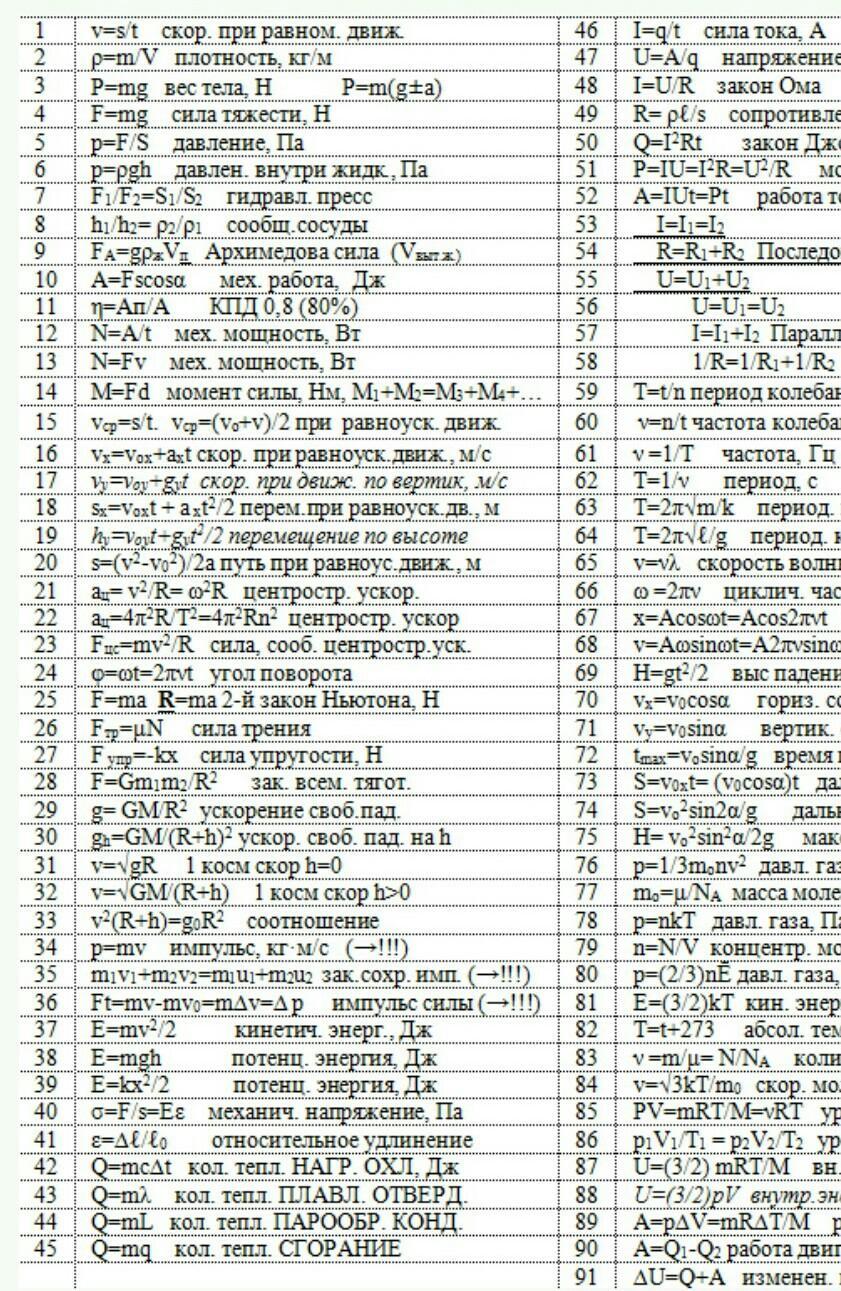 1 v=s/t скор. при равном. движ.
2 ρ=m/V плотность, кг/м
3 P=mg вес тела, Н P=m(g±a)
4 F=mg сила тяжести, Н
5 p=F/S давление, Па
6 p=ρgh давлен. внутри жидк., Па
7 F₁/F₂=S₁/S₂ гидравл. пресс
8 h₁/h₂= ρ₂/ρ₁ сообщ.сосуды
9 Fᴀ=gρжVп Архимедова сила (Vвыт.ж.)
10 A=Fscosα мех. работа, Дж
11 η=Aп/A КПД 0,8 (80%)
12 N=A/t мех. мощность, Вт
13 N=Fv мех. мощность, Вт
14 M=Fd момент силы, Нм, M₁+M₂=M₃+M₄+…
15 vср=s/t. vср=(v₀+v)/2 при равноуск. движ.
16 vₓ=v₀ₓ+aₓt скор. при равноуск.движ., м/с
17 vy=v₀y+gyt скор. при движ. по вертик, м/с
18 sₓ=v₀ₓt + aₓt²/2 перем.при равноуск.дв., м
19 hy=v₀yt+gyt²/2 перемещение по высоте
20 s=(v²-v₀²)/2a путь при равноус.движ., м
21 aц= v²/R= ω²R центростр. ускор.
22 aц=4π²R/T²=4π²Rn² центростр. ускор
23 Fцс=mv²/R сила, сооб. центростр.уск.
24 φ=ωt=2πνt угол поворота
25 F=ma R=ma 2-й закон Ньютона, Н
26 Fтр=μN сила трения
27 Fупр=-kx сила упругости, Н
28 F=Gm₁m₂/R² зак. всем. тягот.
29 g= GM/R² ускорение своб.пад.
30 gₕ=GM/(R+h)² ускор. своб. пад. на h
31 v=√gR 1 косм скор h=0
32 v=√GM/(R+h) 1 косм скор h>0
33 v²(R+h)=g₀R² соотношение
34 p=mv импульс, кг·м/с (→!!!)
35 m₁v₁+m₂v₂=m₁u₁+m₂u₂ зак.сохр. имп. (→!!!)
36 Ft=mv-mv₀=mΔv=Δp импульс силы (→!!!)
37 E=mv²/2 кинетич. энерг., Дж
38 E=mgh потенц. энергия, Дж
39 E=kx²/2 потенц. энергия, Дж
40 σ=F/s=Eε механич. напряжение, Па
41 ε=Δℓ/ℓ₀ относительное удлинение
42 Q=mcΔt кол. тепл. НАГР. ОХЛ, Дж
43 Q=mλ кол. тепл. ПЛАВЛ. ОТВЕРД.
44 Q=mL кол. тепл. ПАРООБР. КОНД.
45 Q=mq кол. тепл. СГОРАНИЕ
46 I=q/t сила тока, А
47 U=A/q напряжение
48 I=U/R закон Ома
49 R= ρℓ/s сопротивле
50 Q=I²Rt закон Дж
51 P=IU=I²R=U²/R мо
52 A=IUt=Pt работа т
53 I=I₁=I₂
54 R=R₁+R₂ Последо
55 U=U₁+U₂
56 U=U₁=U₂
57 I=I₁+I₂ Паралл
58 1/R=1/R₁+1/R₂
59 T=t/n период колеба
60 ν=n/t частота колеба
61 ν=1/T частота, Гц
62 T=1/ν период, с
63 T=2π√m/k период.
64 T=2π√ℓ/g период.
65 v=νλ скорость волн
66 ω=2πν циклич. час
67 x=Acosωt=Acos2πνt
68 v=Aωsinωt=A2πνsinω
69 H=gt²/2 выс падени
70 vₓ=v₀cosα гориз. с
71 vy=v₀sinα вертик.
72 tmax=v₀sinα/g время
73 S=v₀ₓt= (v₀cosα)t да
74 S=v₀²sin2α/g даль
75 H= v₀²sin²α/2g мак
76 p=1/3m₀nv² давл. га
77 m₀=μ/Nᴀ масса моле
78 p=nkT давл. газа, П
79 n=N/V концентр. мо
80 p=(2/3)nĒ давл. газа,
81 E=(3/2)kT кин. энер
82 T=t+273 абсол. тем
83 ν=m/μ= N/Nᴀ коли
84 v=√3kT/m₀ скор. мо
85 PV=mRT/M=νRT ур
86 p₁V₁/T₁ = p₂V₂/T₂ ур
87 U=(3/2) mRT/M вн.
88 U=(3/2)pV внутр.эн
89 A=pΔV=mRΔT/M р
90 A=Q₁-Q₂ работа двиг
91 ΔU=Q+A изменен.